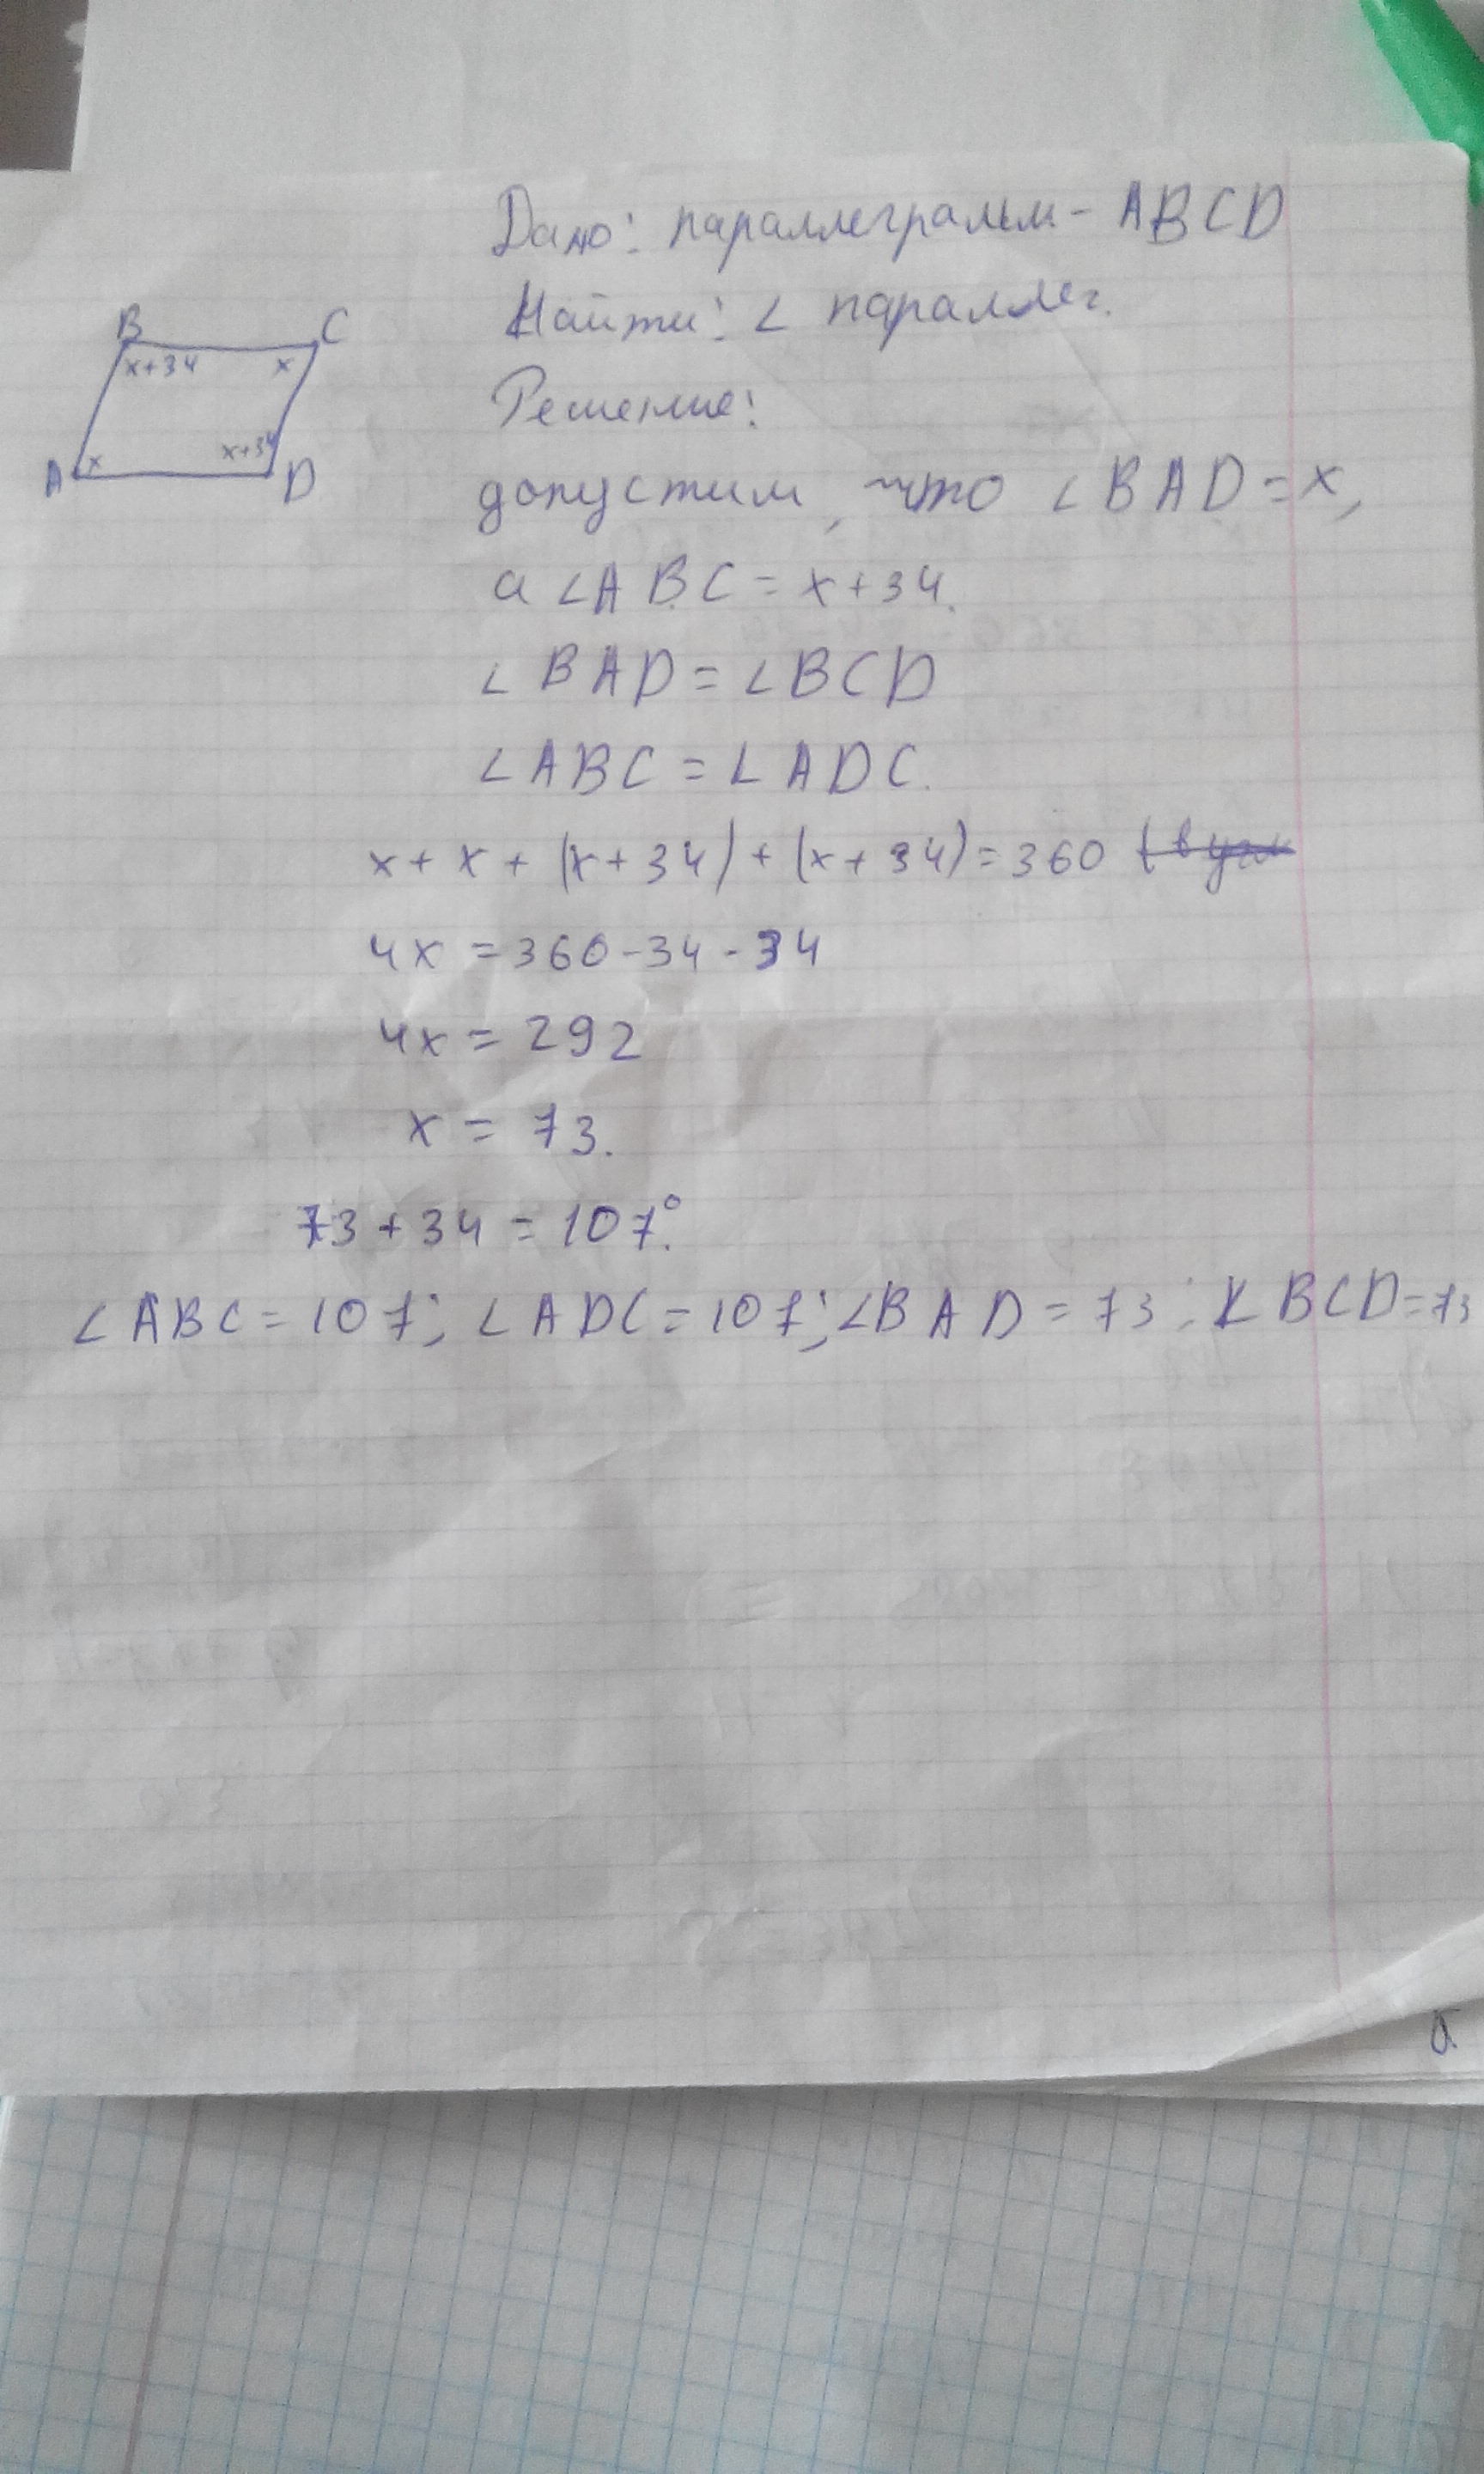 Дано: параллеграмм - ABCD
Найти: ∠ параллег.
B C
x+34 x
x x+34
A D
Решение:
допустим, что ∠BAD = x,
а ∠ABC = x + 34.
∠BAD = ∠BCD
∠ABC = ∠ADC.
x + x + (x + 34) + (x + 34) = 360
4x = 360 - 34 - 34
4x = 292
x = 73.
73 + 34 = 107°.
∠ABC = 107; ∠ADC = 107; ∠BAD = 73; ∠BCD = 73